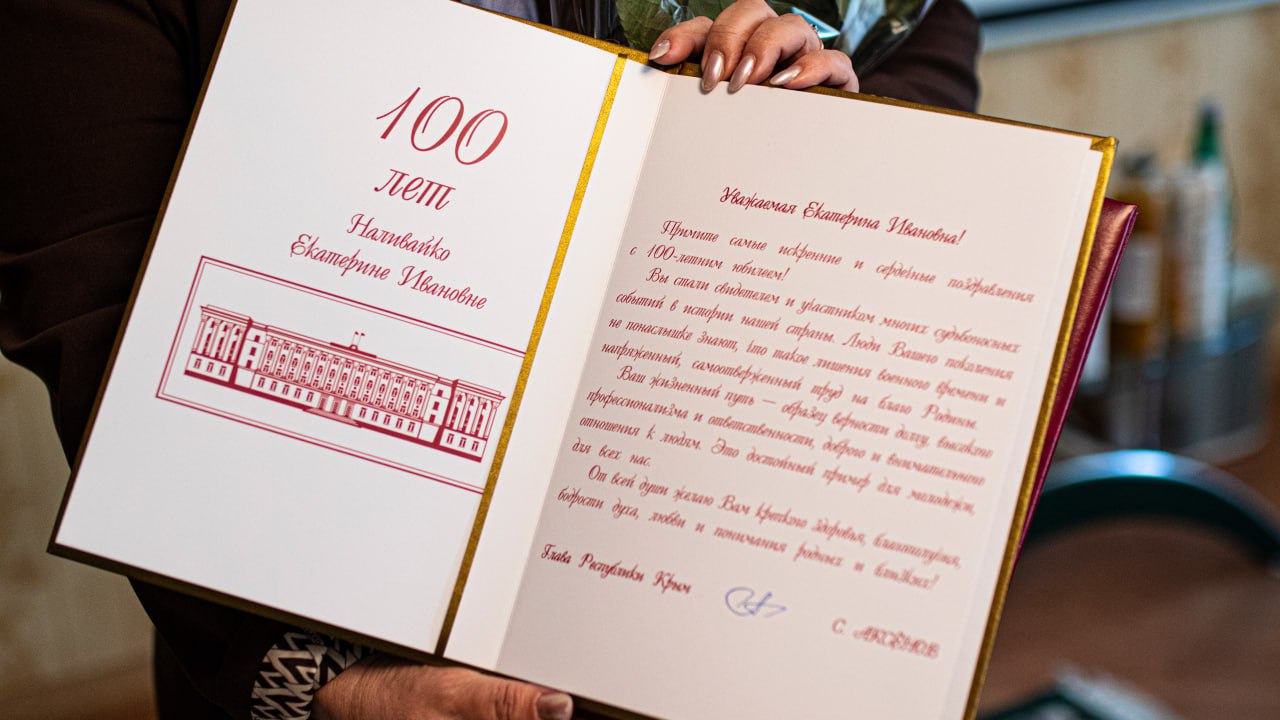 100
лет
Наливайко
Екатерине Ивановне
Уважаемая Екатерина Ивановна!
Примите самые искренние и сердечные поздравления
с 100-летним юбилеем!
Вы стали свидетелем и участником многих судьбоносных
событий в истории нашей страны. Люди Вашего поколения
не понаслышке знают, что такое лишения военного времени и
напряженный, самоотверженный труд на благо Родины.
Ваш жизненный путь — образец верности долгу, высокого
профессионализма и ответственности, доброго и внимательного
отношения к людям. Это достойный пример для молодежи,
для всех нас.
От всей души желаю Вам крепкого здоровья, благополучия,
бодрости духа, любви и понимания родных и близких!
Глава Республики Крым
С. АКСЁНОВ